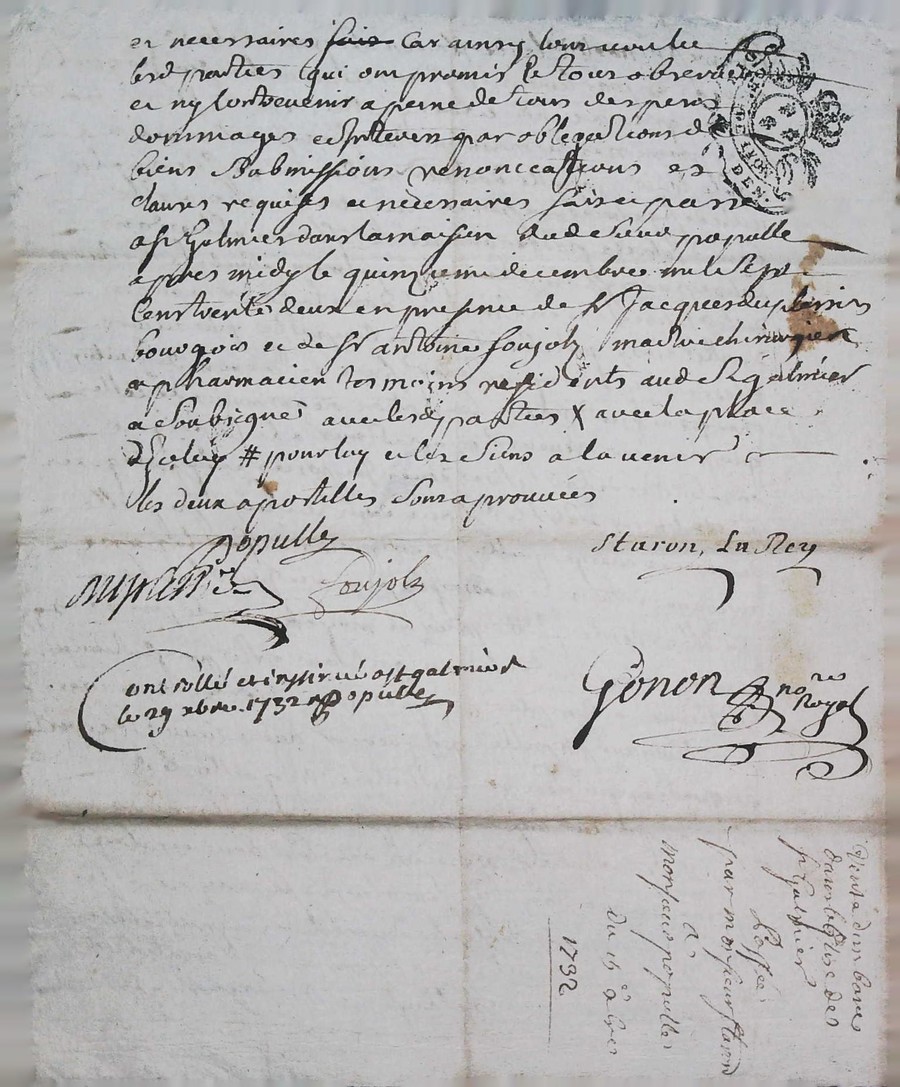 et necessaires fait Car ainsy l'ont voulu
lesd parties qui ont promis le tout observer
et ny Contrevenir a peine de tous despens
dommages et par obligations de
biens Submissions renonceations et
clauses requises et nécessaires fait et passé
a st Galmier dans la maison dud Sieur populle
apres midy le quinzieme decembre mil Sept
Cent trente deux en presence de sr Jacques duplessis
bourgois et de sr antoine Soujols maitre chirurgien
et pharmacien tesmoins residents aud st galmier
et Soubsignes avec lesd parties X avec la place
# pour luy et les Siens a lavenir
les deux apostilles Sont aprouvées
Populle
Staron, La Rey
Soujols
Controllé et insinué a st galmier
le 29 xbre 1732 Populle
Gonon nore Royal
DEN.
Vente d'un banc
dans leglise de
st Galmier
Passée
par monsieur staron
a
monsieur populle
du 15e xbre
1732